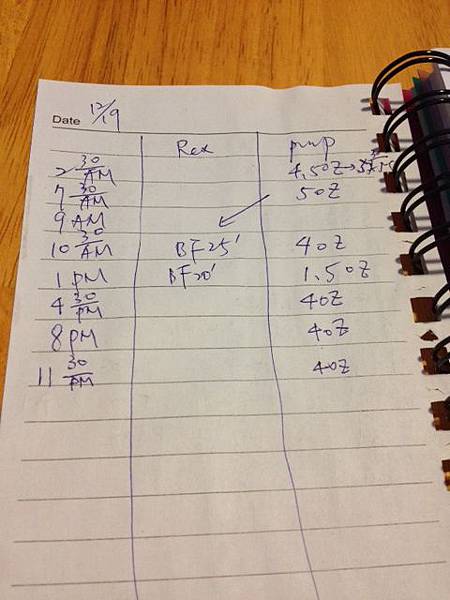 Date 12/19
Rex pump
2 30/AM 4.5OZ →
7 30/AM 5OZ
9 AM
10 30/AM BF25' 4OZ
1 PM BF20' 1.5OZ
4 30/PM 4OZ
8 PM 4OZ
11 30/PM 4OZ